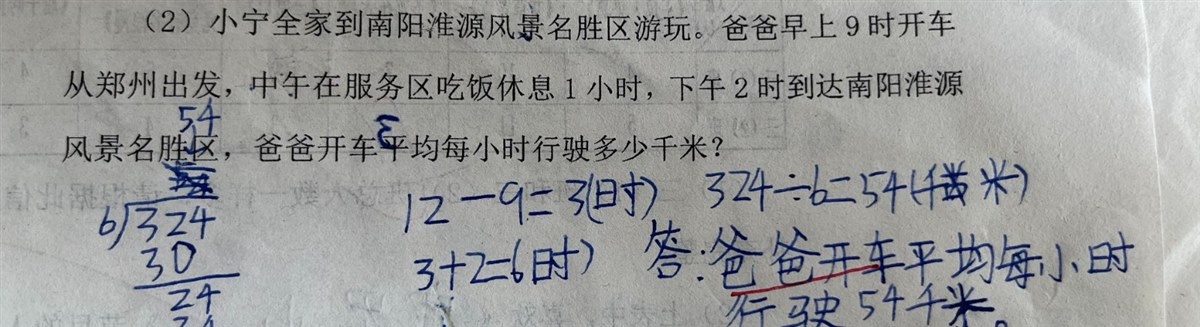 （2）小宁全家到南阳淮源风景名胜区游玩。爸爸早上9时开车
从郑州出发，中午在服务区吃饭休息1小时，下午2时到达南阳淮源
风景名胜区，爸爸开车平均每小时行驶多少千米？
54
6)324
30
24
24
12-9=3(时)
3+2=6(时)
324÷6=54(千米)
答:爸爸开车平均每小时
行驶54千米。